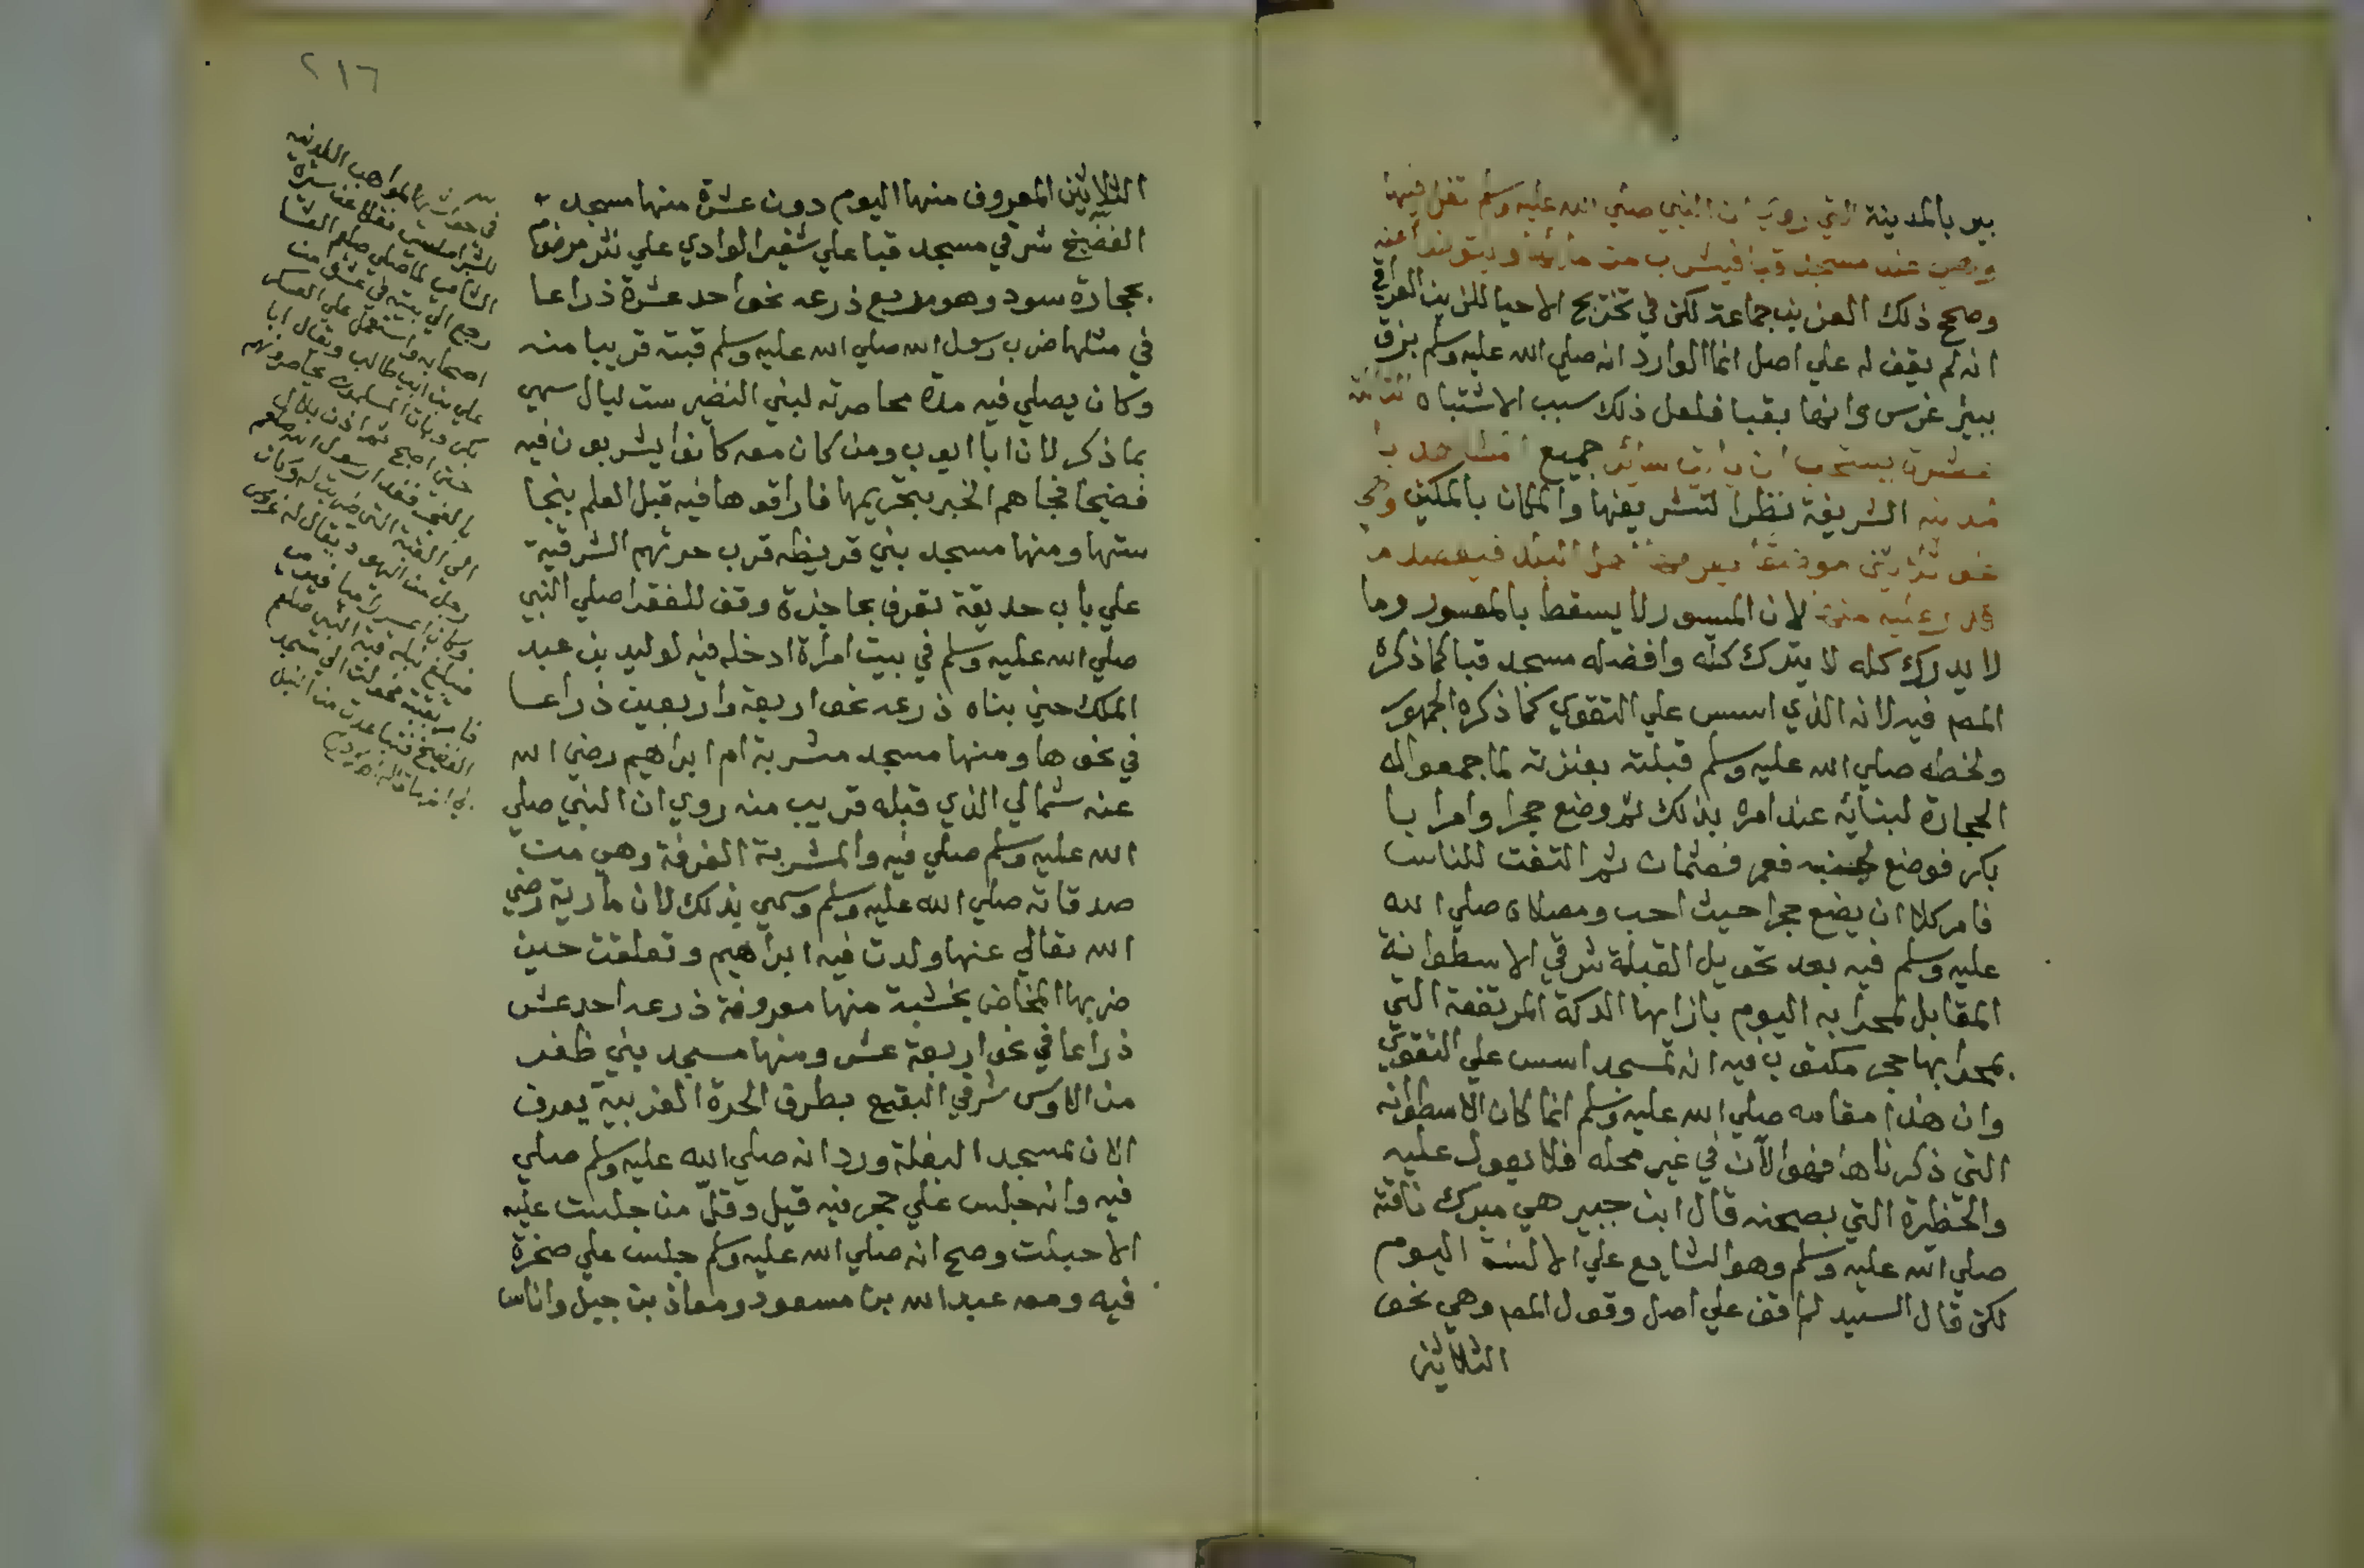 بير بالمدينة التي روي ان النبي صلي الله عليه وسلم تفل فيها
وهي عند مسجد قبا فيشرب من مائها ويتوضأ منه
وصحح ذلك العز بن جماعة لكن في تخريج الاحيا للزين العراقي
انه لم يقف له علي اصل انما الوارد انه صلي الله عليه وسلم بزق
ببير غرس وانها بقبا فلعل ذلك سبب الاشتباه
عشرة يستحب ان ياتي سائر جميع المشاهد با
لمدينه الشريفة نظرا لتشريفها والمكان بالمكين وهي
نحو ثلاثين موضعا يعرفها اهل البلد فيقصد ما
قدر عليه منها لان الميسور لا يسقط بالمعسور وما
لا يدرك كله لا يترك كله وافضله مسجد قبا كما ذكره
المصم فيه لانه الذي اسس علي التقوي كما ذكره الجمهور
ولخطه صلي الله عليه وسلم قبلته بعنزته لما جمعوا له
الحجارة لبنائه عند امره بذلك ثم وضع حجرا وامرا با
بكر فوضع لجنبه فعمر فعثمان ثم التفت للناس
فامر كلا ان يضع حجرا حيث احب ومصلاه صلي الله
عليه وسلم فيه بعد تحويل القبلة شرقي الاسطوانة
المقابل لمحرابه اليوم بازايها الدكة المرتفعة التي
بمحرابها حجر مكتوب فيه انه لمسجد اسس علي التقوي
وان هذا مقامه صلي الله عليه وسلم انما كان الاسطوانه
التي ذكرناها فهو الآن في غير محله فلا يعول عليه
والحظيرة التي بصحنه قال ابن جبير هي مبرك ناقته
صلي الله عليه وسلم وهو الشايع علي الالسنة اليوم
لكن قال السيد لم اقف علي اصل وقول المصم وهي نحو
الثلاثين
٢١٦
الثلاثين المعروف منها اليوم دون عشرة منها مسجد
الفضيخ شرقي مسجد قبا علي شفير الوادي علي نشز مرضوم
بحجارة سود وهو مربع ذرعه نحو احد عشرة ذراعا
في مثلها ضرب رسول الله صلي الله عليه وسلم قبته قريبا منه
وكان يصلي فيه مدة محاصرته لبني النضير ست ليال سمي
بما ذكر لان ابا ايوب ومن كان معه كانوا يشربون فيه
فضيخا فجاهم الخبر بتحريمها فاراقوها فيه قبل العلم بنجا
ستها ومنها مسجد بني قريظه قرب حرتهم الشرقية
علي باب حديقة تعرف بحاجزة وقف للفقرا صلي النبي
صلي الله عليه وسلم في بيت امراة ادخله فيه لوليد بن عبد
الملك حين بناه ذرعه نحو اربعة واربعين ذراعا
في نحوها ومنها مسجد مشربة ام ابراهيم رضي الله
عنه شمالي الذي قبله قريب منه روي ان النبي صلي
الله عليه وسلم صلي فيه والمشربة الغرفة وهي من
صدقاته صلي الله عليه وسلم وسمي بذلك لان مارية رضي
الله تعالي عنها ولدت فيه ابراهيم وتعلقت حين
ضربها المخاض بخشبة منها معروفة ذرعه احد عشر
ذراعا في نحو اربعة عشر ومنها مسجد بني ظفر
من الاوس شرقي البقيع بطرق الحرة الغربية يعرف
الان بمسجد البغلة ورد انه صلي الله عليه وسلم صلي
فيه وانه جلس علي حجر فيه قيل وقل من جلست عليه
الا حبلت وصح انه صلي الله عليه وسلم جلس علي صخرة
فيه ومعه عبد الله بن مسعود ومعاذ بن جبل واناس
المواهب اللدنيه
للشبراملسي نقلا عن سيرة
الشامي لما صلي صلعم العشا
رجع الي بيته في عشرة من
اصحابه واستعمل علي العسكر
علي بن ابي طالب ويقال ابا
بكر وبات المسلمون يحاصرونهم
حتي اصبح ثم اذن بلال
بالفجر فغدا رسول الله صلعم
الي القبة التي ضربت له وكان
رجل من اليهود يقال له عزوك
وكان اعسر راميا فيرمي
فتبلغ نبله قبة النبي صلعم
فامر بقبته فحولت الي مسجد
الفضيخ فتباعدت من النبل